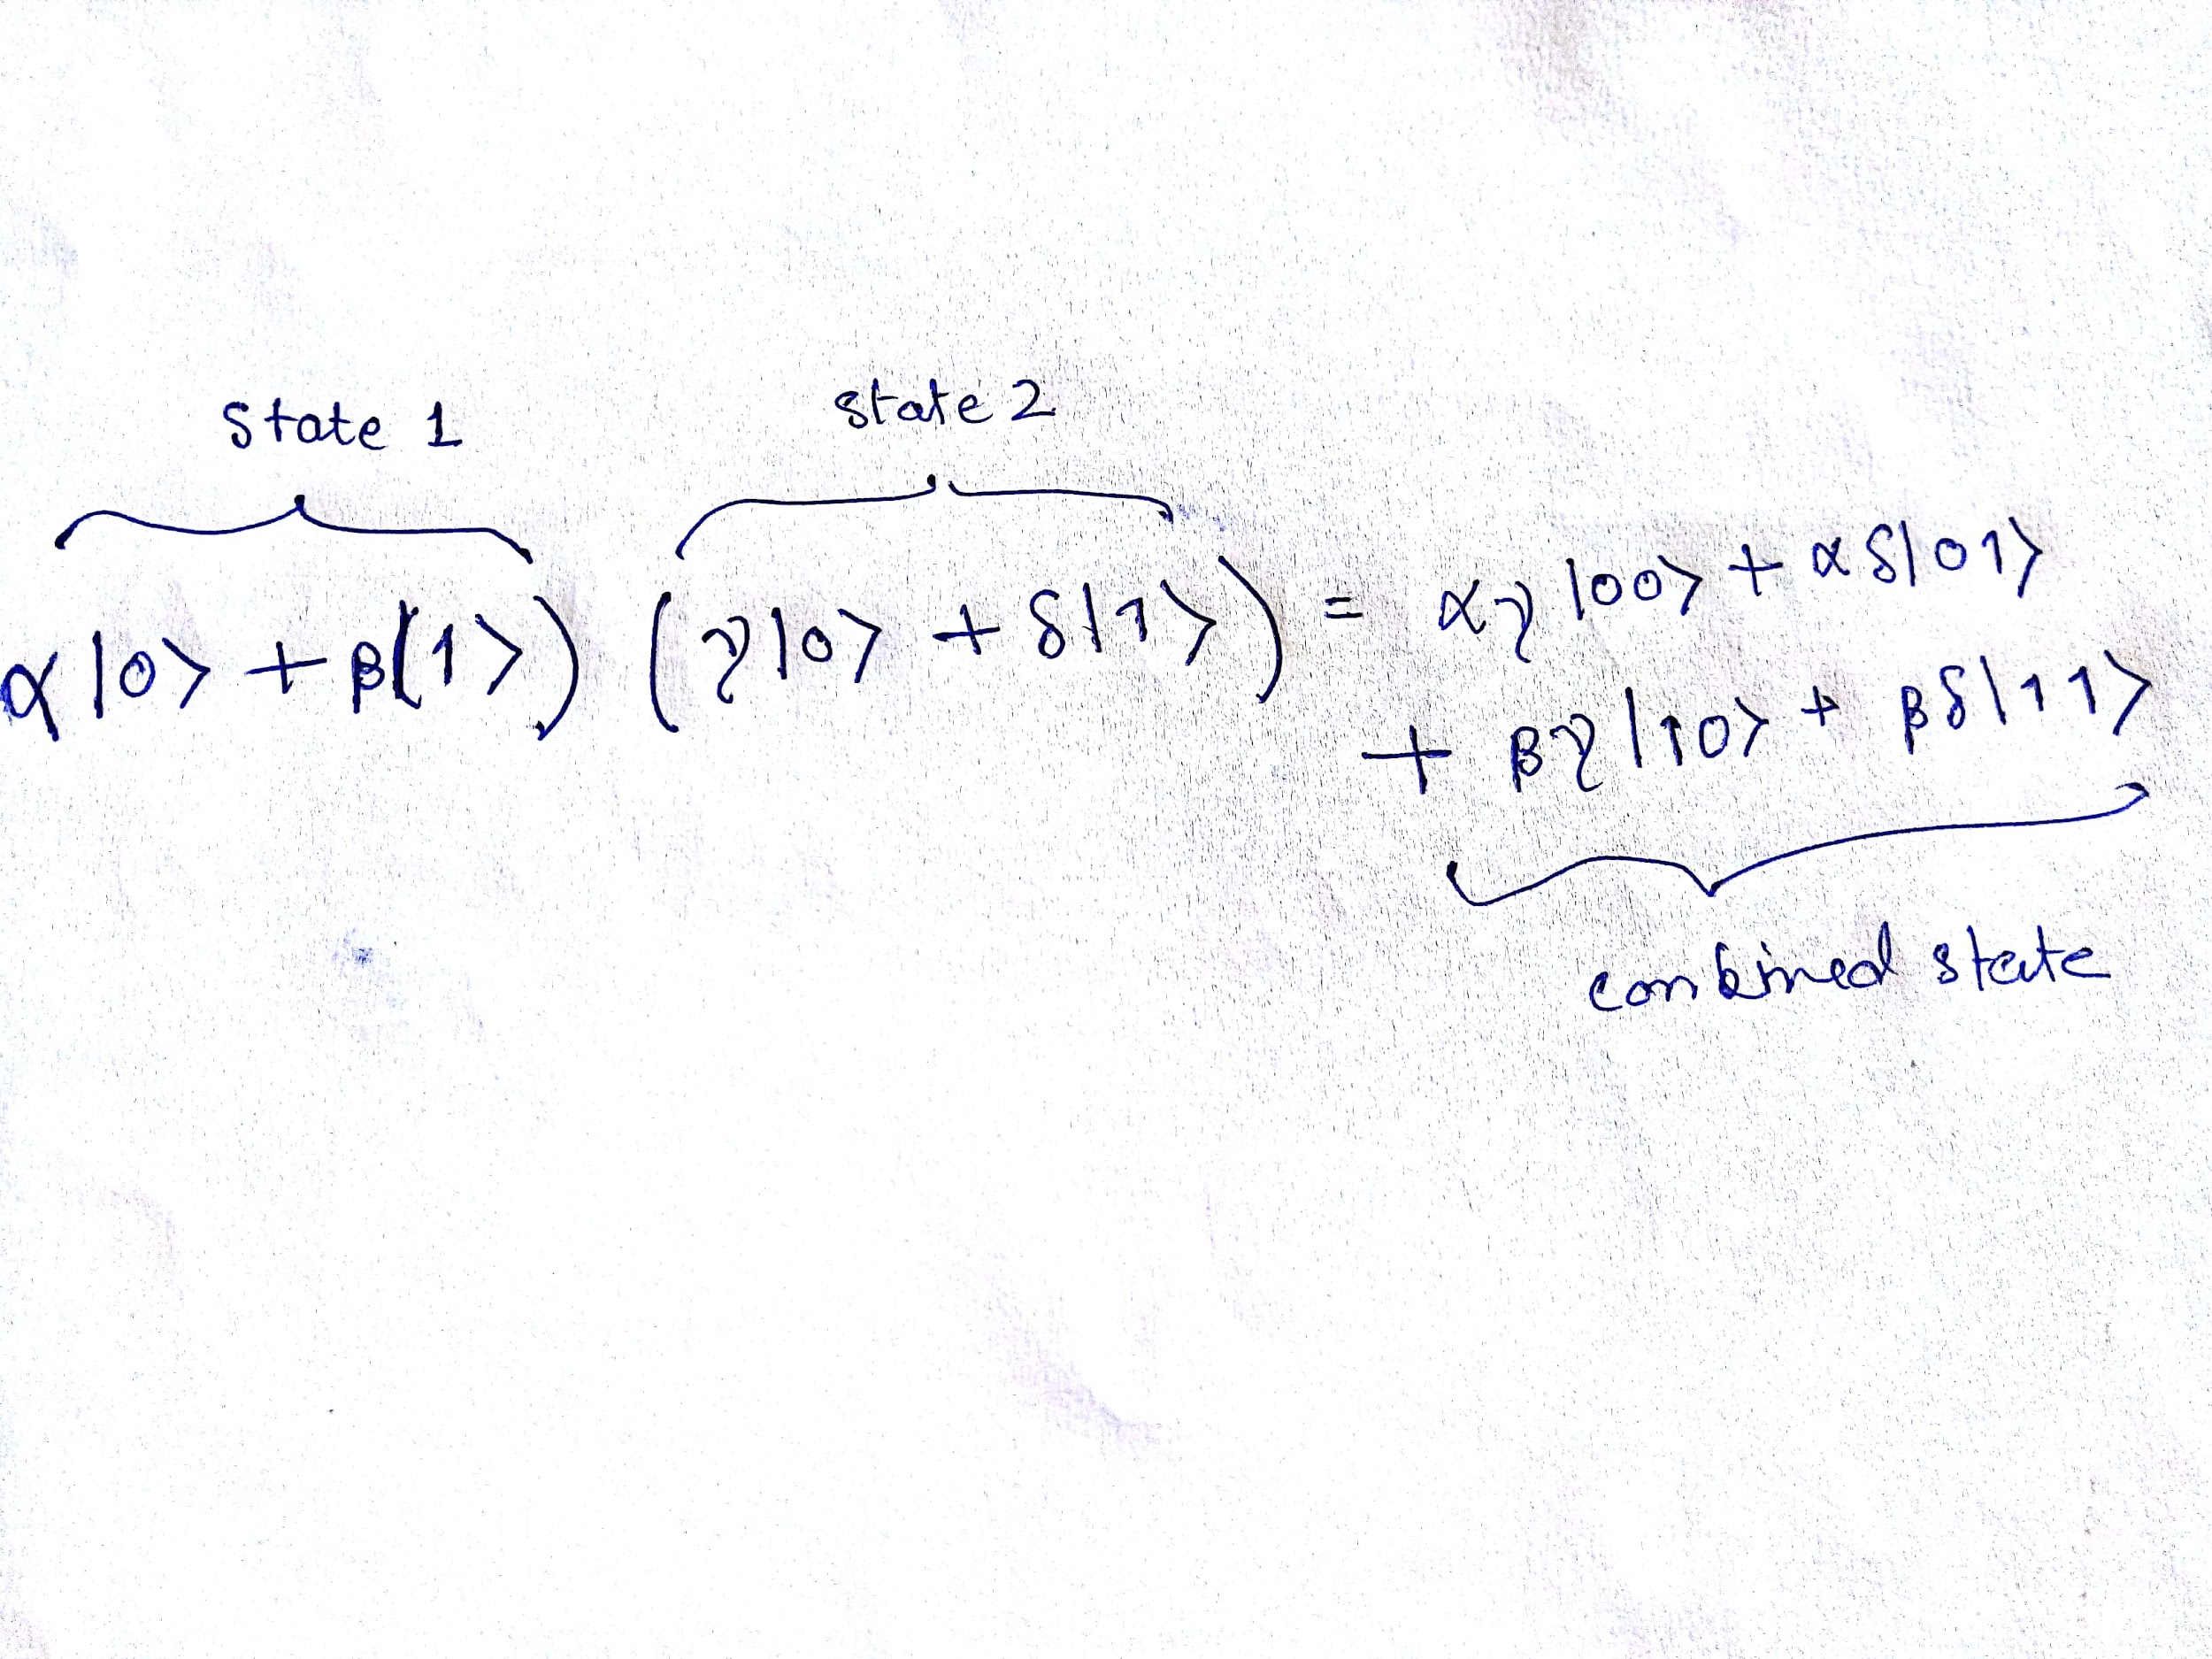 State 1 state 2
α|0> + β(1>) (γ|0> + δ|1>) = αγ|00> + αδ|01>
+ βγ|10> + βδ|11>
combined state